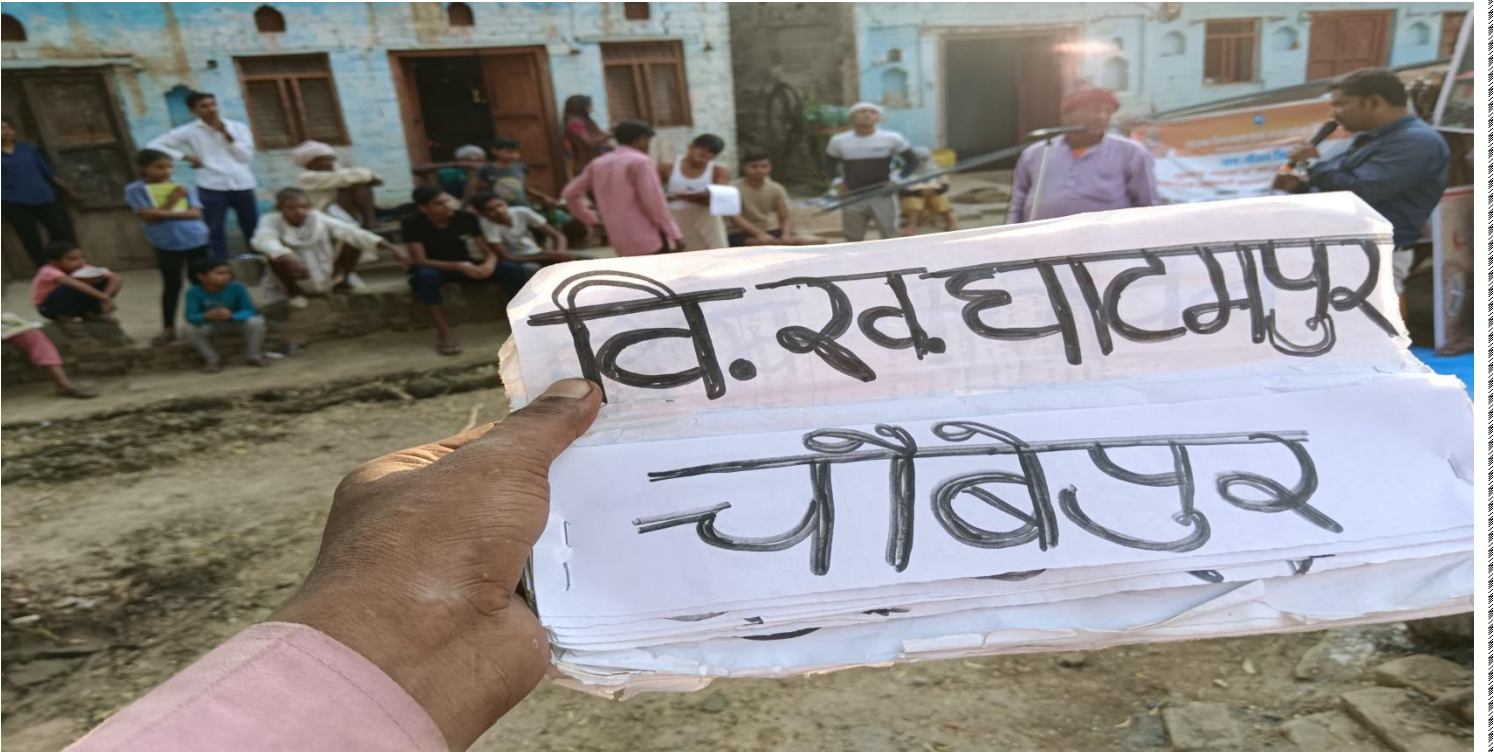 वि.ख.घाटमपुर
चौबेपुर